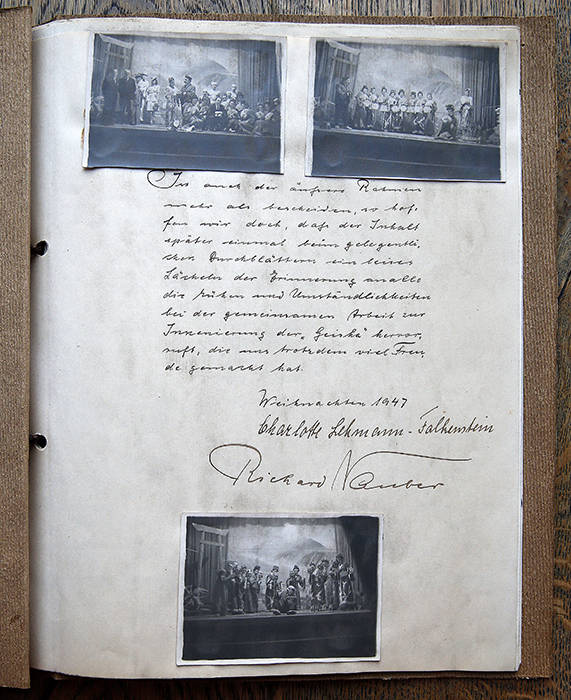 Ist auch der äußere Rahmen
mehr als bescheiden, so hof-
fen wir doch, daß der Inhalt
später einmal beim gelegentli-
chen Durchblättern ein leises
Lächeln der Erinnerung an alle
die Mühen und Umständlichkeiten
bei der gemeinsamen Arbeit zur
Inszenierung der „Geisha" hervor-
ruft, die uns trotzdem viel Freu-
de gemacht hat.
Weihnachten 1947
Charlotte Lehmann-Falkenstein
Richard Nauber